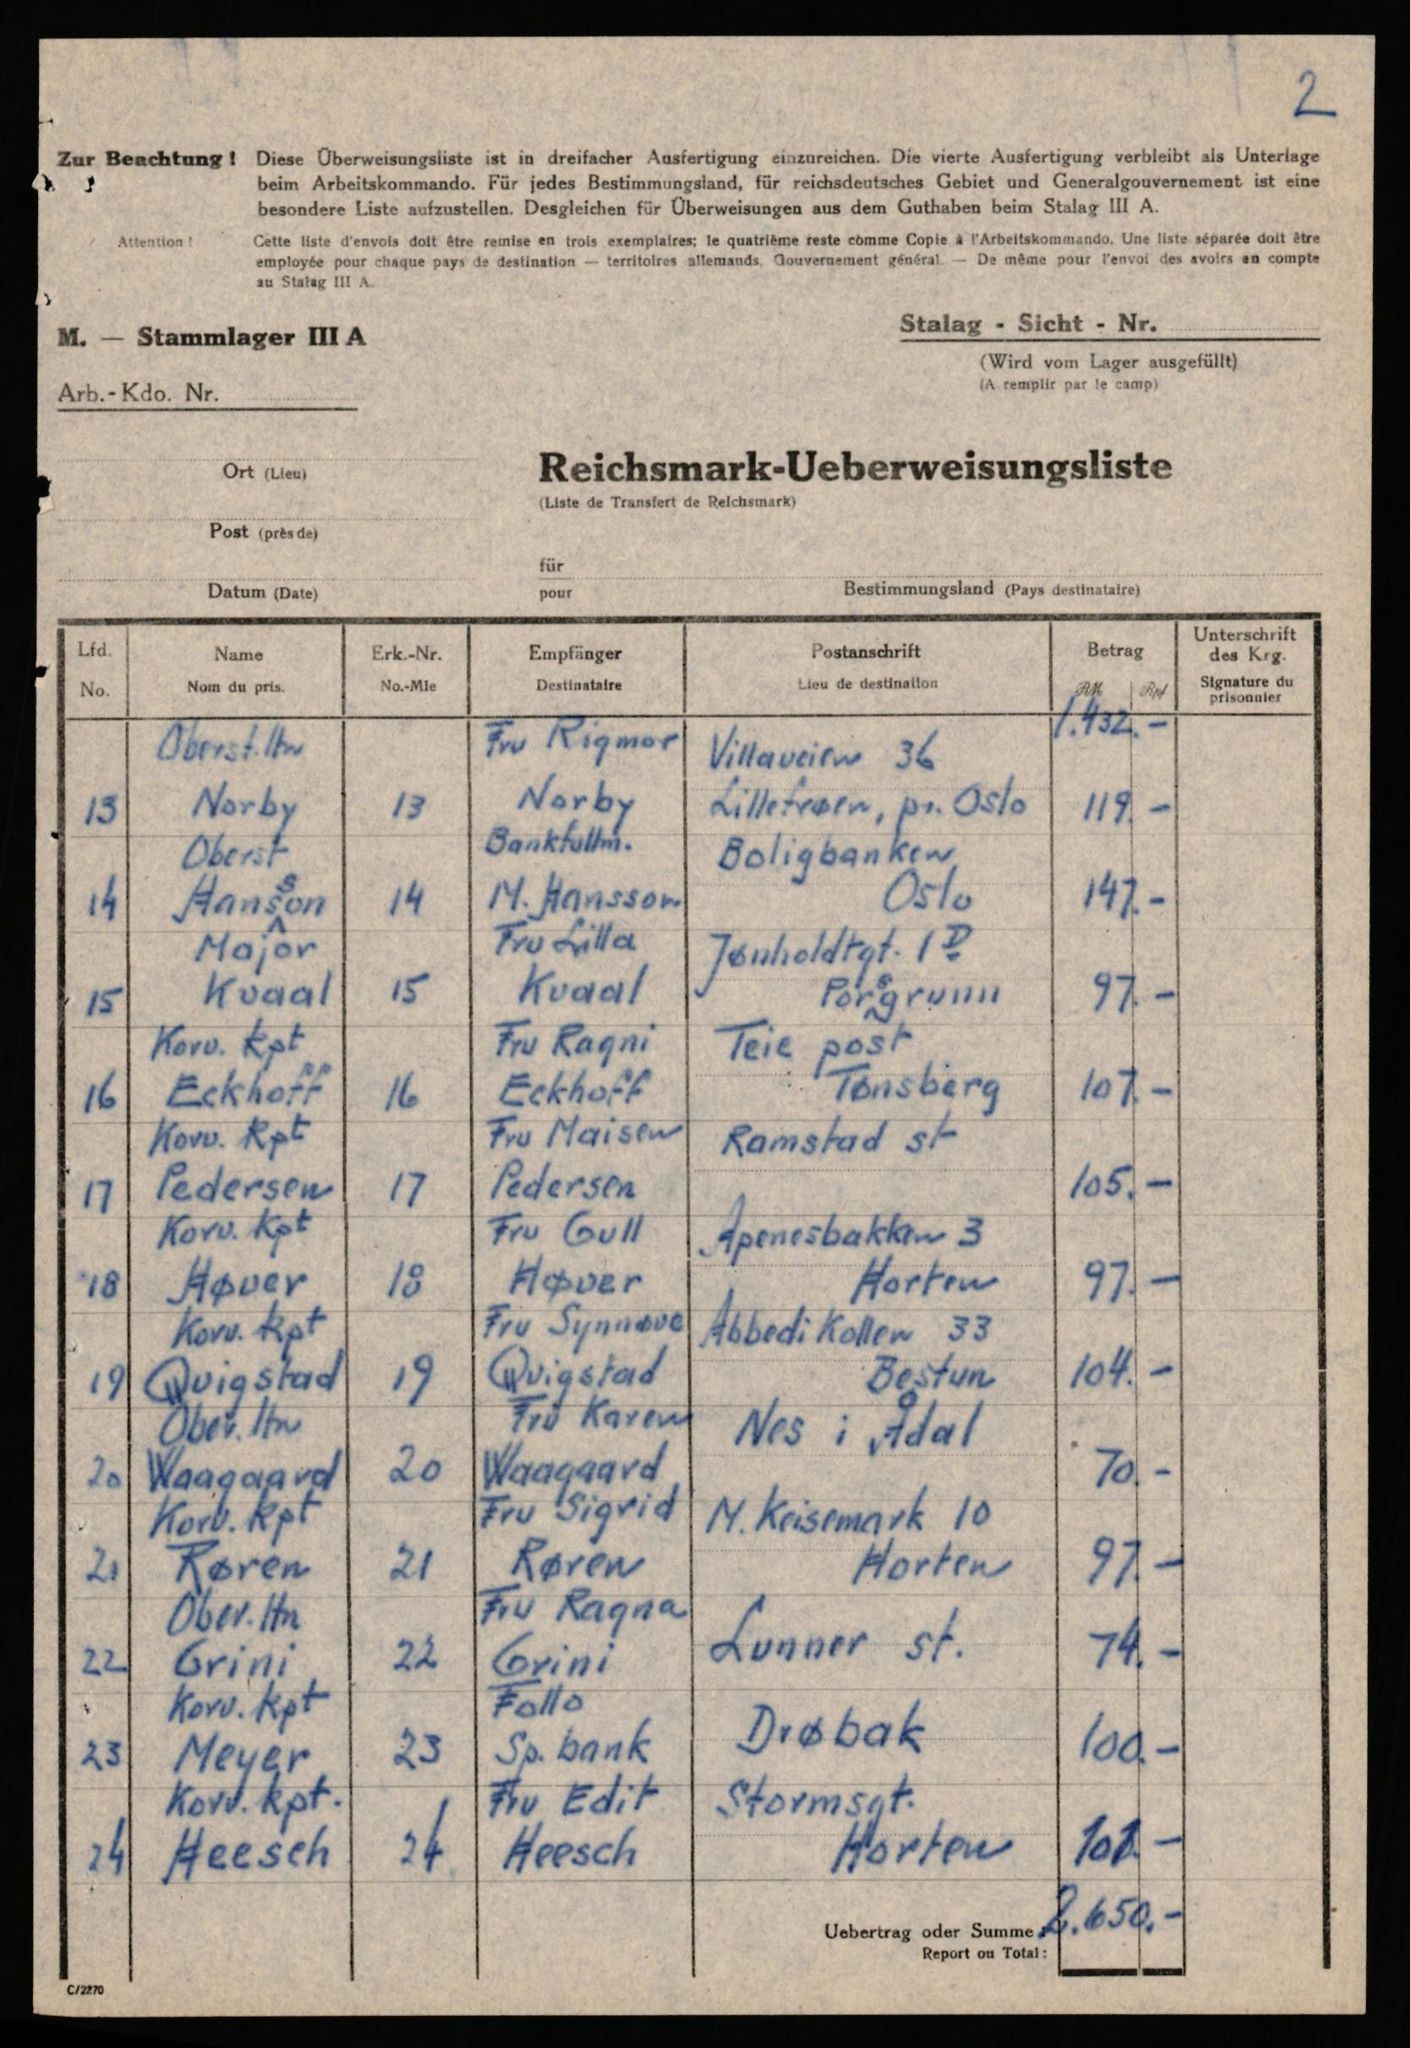 2
Zur Beachtung! Diese Überweisungsliste ist in dreifacher Ausfertigung einzureichen. Die vierte Ausfertigung verbleibt als Unterlage
beim Arbeitskommando. Für jedes Bestimmungsland, für reichsdeutsches Gebiet und Generalgouvernement ist eine
besondere Liste aufzustellen. Desgleichen für Überweisungen aus dem Guthaben beim Stalag III A.
Attention! Cette liste d'envois doit être remise en trois exemplaires; le quatrième reste comme Copie à l'Arbeitskommando. Une liste séparée doit être
employée pour chaque pays de destination — territoires allemands, Gouvernement général. — De même pour l'envoi des avoirs en compte
au Stalag III A.
M. — Stammlager III A
Stalag - Sicht - Nr.
(Wird vom Lager ausgefüllt)
(A remplir par le camp)
Arb.-Kdo. Nr.
Ort (Lieu)
Reichsmark-Ueberweisungsliste
(Liste de Transfert de Reichsmark)
Post (près de)
für
Datum (Date)
pour
Bestimmungsland (Pays destinataire)
Lfd. Name Erk.-Nr. Empfänger Postanschrift Betrag Unterschrift des Krg.
No. Nom du pris. No.-Mle Destinataire Lieu de destination RM Rpf Signature du prisonnier
1.432.-
Oberst.ltn Fru Rigmor Villaveien 36
13 Norby 13 Norby Lillefrøen, pr. Oslo 119.-
Oberst Bankfullm. Boligbanken
14 Hansson 14 M. Hansson Oslo 147.-
Major Fru Lilla Jønholdtgt. 1D
15 Kvaal 15 Kvaal Porsgrunn 97.-
Korv. Kpt Fru Ragni Teie post
16 Eckhoff 16 Eckhoff Tønsberg 107.-
Korv. Kpt Fru Maisen Ramstad st
17 Pedersen 17 Pedersen 105.-
Korv. Kpt Fru Gull Apenesbakken 3
18 Høver 18 Høver Horten 97.-
Korv. Kpt Fru Synnøve Abbedikollen 33
19 Quigstad 19 Quigstad Bestun 104.-
Ober.ltn Fru Karen Nes i Ådal
20 Waagaard 20 Waagaard 70.-
Korv. Kpt Fru Sigrid M. Keisemark 10
21 Røren 21 Røren Horten 97.-
Ober.ltn Fru Ragna
22 Grini 22 Grini Lunner st. 74.-
Korv. Kpt Follo
23 Meyer 23 Sp. bank Drøbak 100.-
Korv. kpt. Fru Edit Stormsgt.
24 Heesch 24 Heesch Horten 101.-
Uebertrag oder Summe: 2.650.-
Report ou Total:
C/2270